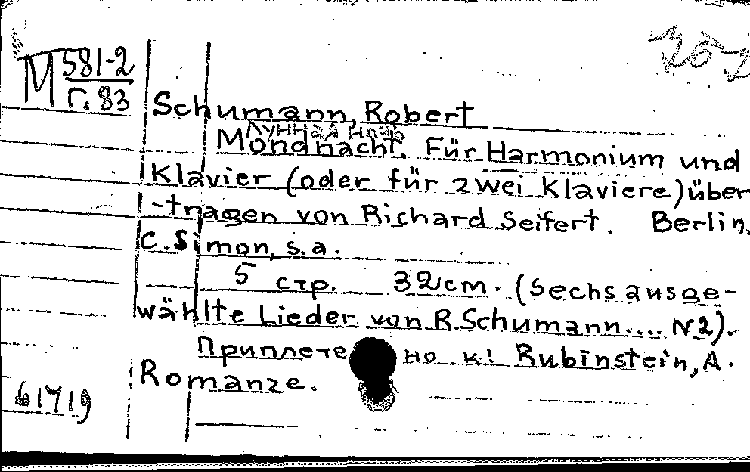 М 581-2
Г. 83
Schumann, Robert
Лунная ночь
Mondnacht. Für Harmonium und
Klavier (oder für zwei Klaviere) über
-tragen von Richard Seifert. Berlin,
C. Simon, s.a.
5 стр. 32 cm. (Sechs ausge-
wählte Lieder von R. Schumann.... N2).
Приплетено к: Rubinstein, A.
Romanze.
61719